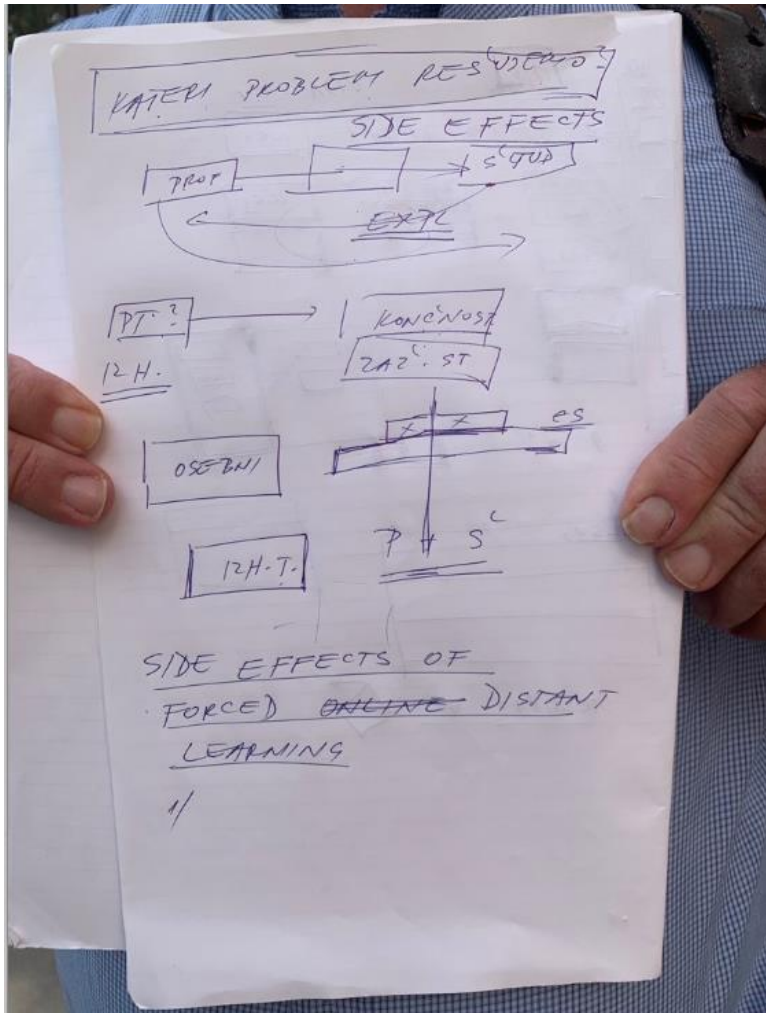 KATERI PROBLEM REŠUJEMO?
SIDE EFFECTS
PROF ŠTUD
EXPL
PT. ? KONČNOST
12H. ZAČ. ST
es
x x
OSEBNI
P Š
12H.T.
SIDE EFFECTS OF
FORCED ONLINE DISTANT
LEARNING
1/